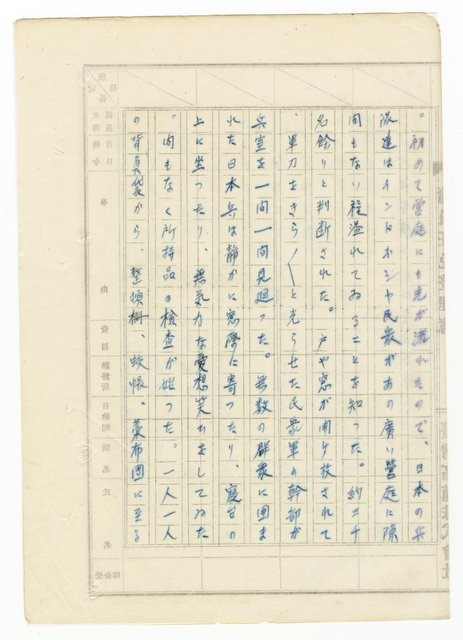 。初めて営庭にも光が流れたので、日本の兵
隊達はインドネシヤ民衆があの廣い営庭に隙
間もない程溢れてゐることを知った。約三千
名餘りと判断された。戸や窓が開け放されて
、軍刀をきら／＼と光らせた民衆軍の幹部が
兵室を一間一間見廻った。無数の群衆に囲ま
れた日本兵は静かに窓際に寄ったり、寝台の
上に坐ったり、無気力な愛想笑ひをしてゐた
。間もなく所持品の検査が始った。一人一人
の背負袋から、整頓棚、蚊帳、藁布団に至る